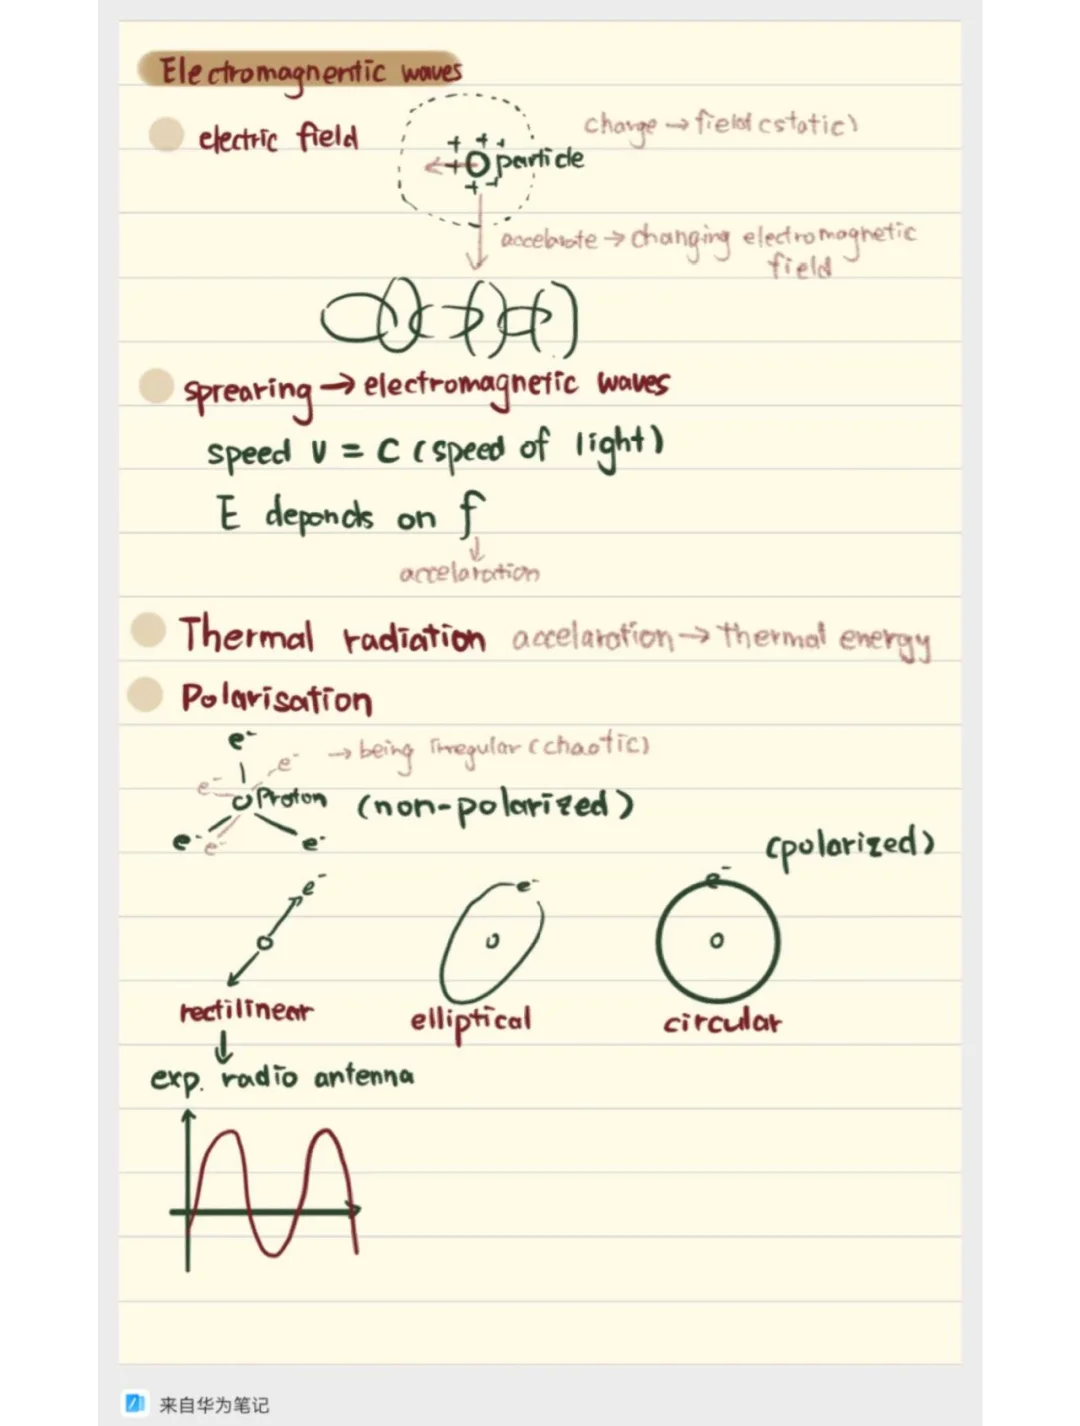 Electromagnentic waves
electric field
charge → field (static)
+ + +
+ particle
+ +
accelarate → changing electromagnetic
field
sprearing → electromagnetic waves
speed v = c (speed of light)
E deponds on f
↓
accelaration
Thermal radiation accelaration → thermal energy
Polarisation
e⁻
e⁻ → being irregular (chaotic)
e⁻ Proton (non-polarized)
e⁻ e⁻ e⁻
(polarized)
e⁻ e⁻ e⁻
rectilinear elliptical circular
↓
exp. radio antenna
来自华为笔记